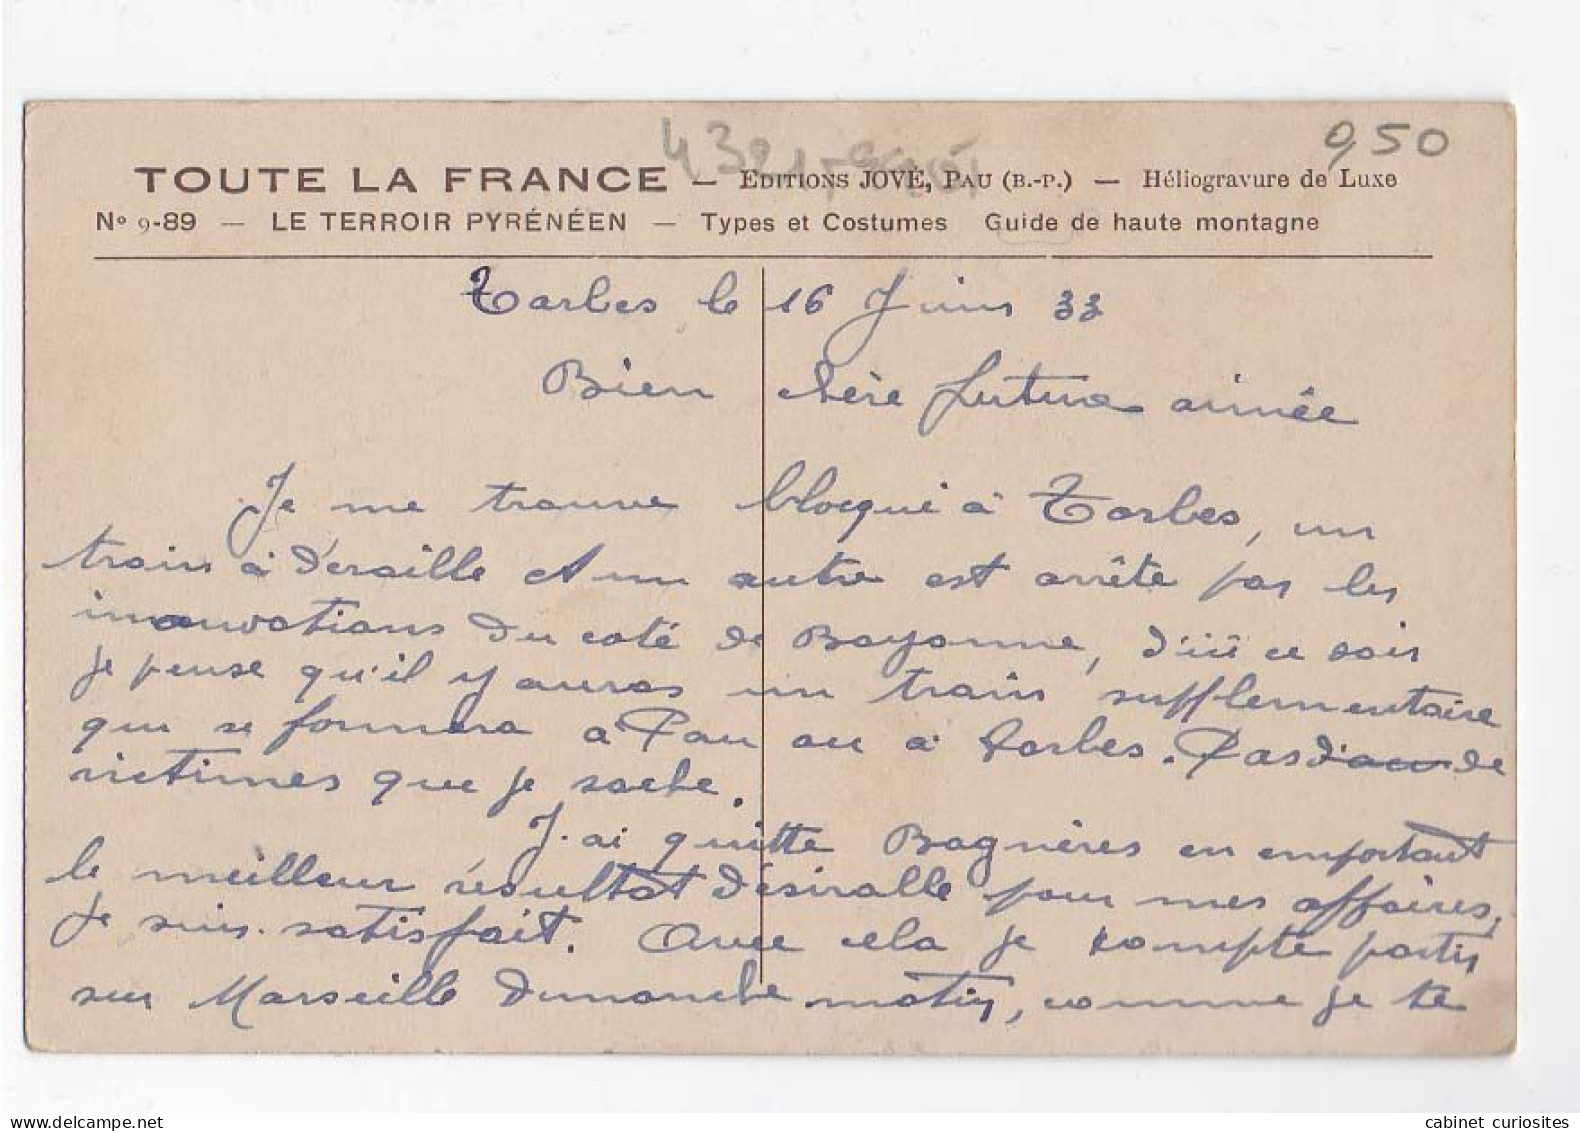 950
TOUTE LA FRANCE — EDITIONS JOVÉ, PAU (B.-P.) — Héliogravure de Luxe
Nº 9-89 — LE TERROIR PYRÉNÉEN — Types et Costumes Guide de haute montagne
Tarbes le 16 Juin 33
Bien chère future aimée
Je me trouve bloqué à Tarbes, un
train à déraillé et un autre est arrête par les
innovations du coté de Bayonne, d'ici ce soir
je pense qu'il y auras un train supplementaire
qui se formera a Pau ou à Tarbes. Pas de
victimes que je sache.
J'ai quitte Bagnères en emportant
le meilleur résultat désirable pour mes affaires,
je suis satisfait. Avec cela je compte partir
sur Marseille dimanche matin, comme je te
cabinet curiosites